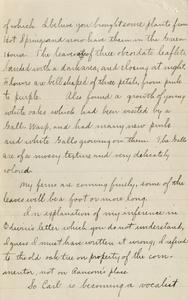 of which I believe you brought some plants from
last Spring and now have them in the Green
House. The leaves of three obcordate leaflets
banded with a dark area, and closing at night
Flowers are bell shaped of three petals, from pink
to purple. Also found a growth of young
white oaks which had been visited by a
Gall Wasp, and had many new pinks
and white Galls growing on them. The Galls
are of a mossy texture and very delicately
colored.
My ferns are coming finely, some of the
leaves will be a foot or more long.
In explanation of my reference in
Edwin's letter which you do not understand,
I guess I must have written it wrong, I refered
to the old oak tree on property of the com-
mentor, not on Ransom's place.
So Carl is becoming a vocalist